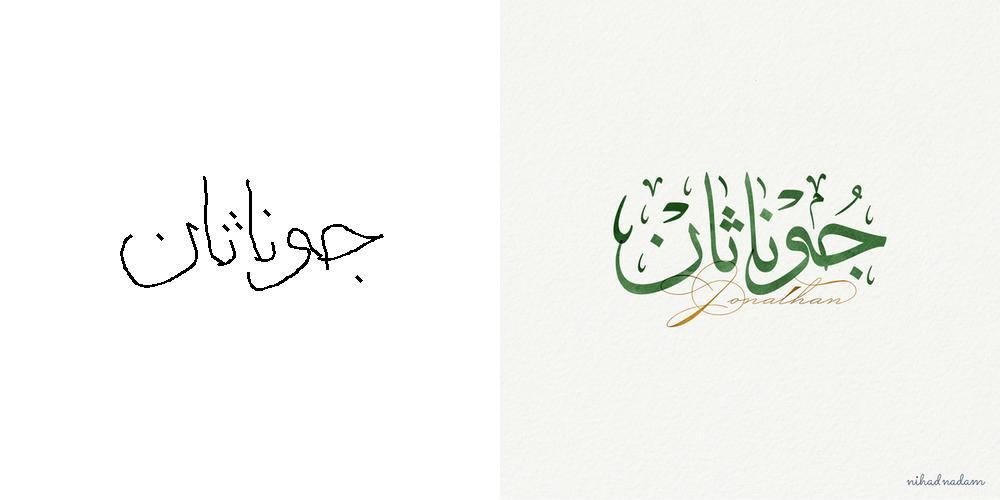 جوناثان
جُوْنَاثَانْ
Jonathan
nihadnadam